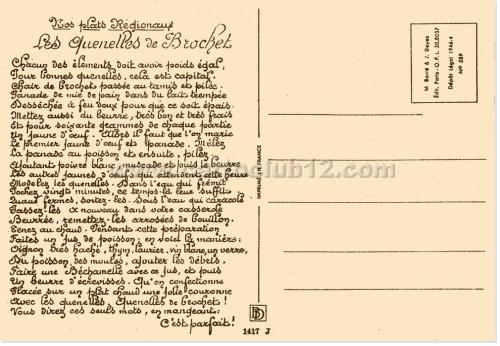 Nos plats Régionaux
Les Quenelles de Brochet
Chacun des éléments doit avoir poids égal,
Pour bonnes quenelles, cela est capital.
Chair de brochet passée au tamis et pilée.
Panade de mie de pain dans du lait trempée
Desséchée à feu doux pour que ce soit épais.
Mettez aussi du beurre, très bon et très frais
Et pour soixante grammes de chaque partie
Un jaune d'œuf. Alors il faut que l'on marie
Le premier jaune d'œuf et panade. Mêlez
La panade au poisson et ensuite, pilez
Ajoutant poivre blanc, muscade et puis le beurre
Les autres jaunes d'œuf, qui attendent cette heure
Modelez les quenelles. Dans l'eau qui frémit
Pochez vingt minutes, ce temps-là leur suffit.
Quand fermes, sortez-les. Sous l'eau qui caracole
Passez-les à nouveau dans votre casserole
Beurrée, remettez-les arrosées de bouillon.
Tenez au chaud. Pendant cette préparation
Faites un jus de poisson; en voici la manière:
Oignon très haché, thym, laurier, vin blanc, un verre,
Du poisson, des moules, ajouter les débris.
Faire une Béchamelle avec ce jus, et puis
Un beurre d'écrevisses. Qu'on confectionne
Placée sur un plat chaud une jolie couronne
Avec les quenelles. Quenelles de brochet!
Vous direz ces seuls mots, en mangeant:
C'est parfait!
M. Barré & J. Dayez
Édit. Paris - O.P.L. 30.5037
Dépôt légal 1946-4
N° 559
IMPRIMÉ EN FRANCE
BD
1417 J
club12.com